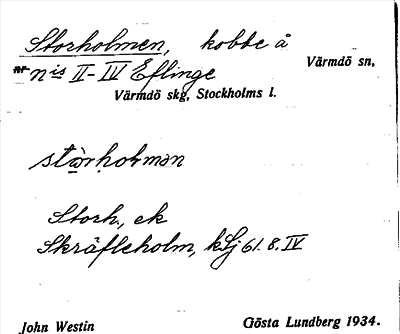 Storholmen, kobbe å
Värmdö sn,
nis II-IV Eflinge
Värmdö skg, Stockholms l.
stòrhoḷmən
Storh., ek
Skräfleholm, kSj 61.8.IV
John Westin
Gösta Lundberg 1934.